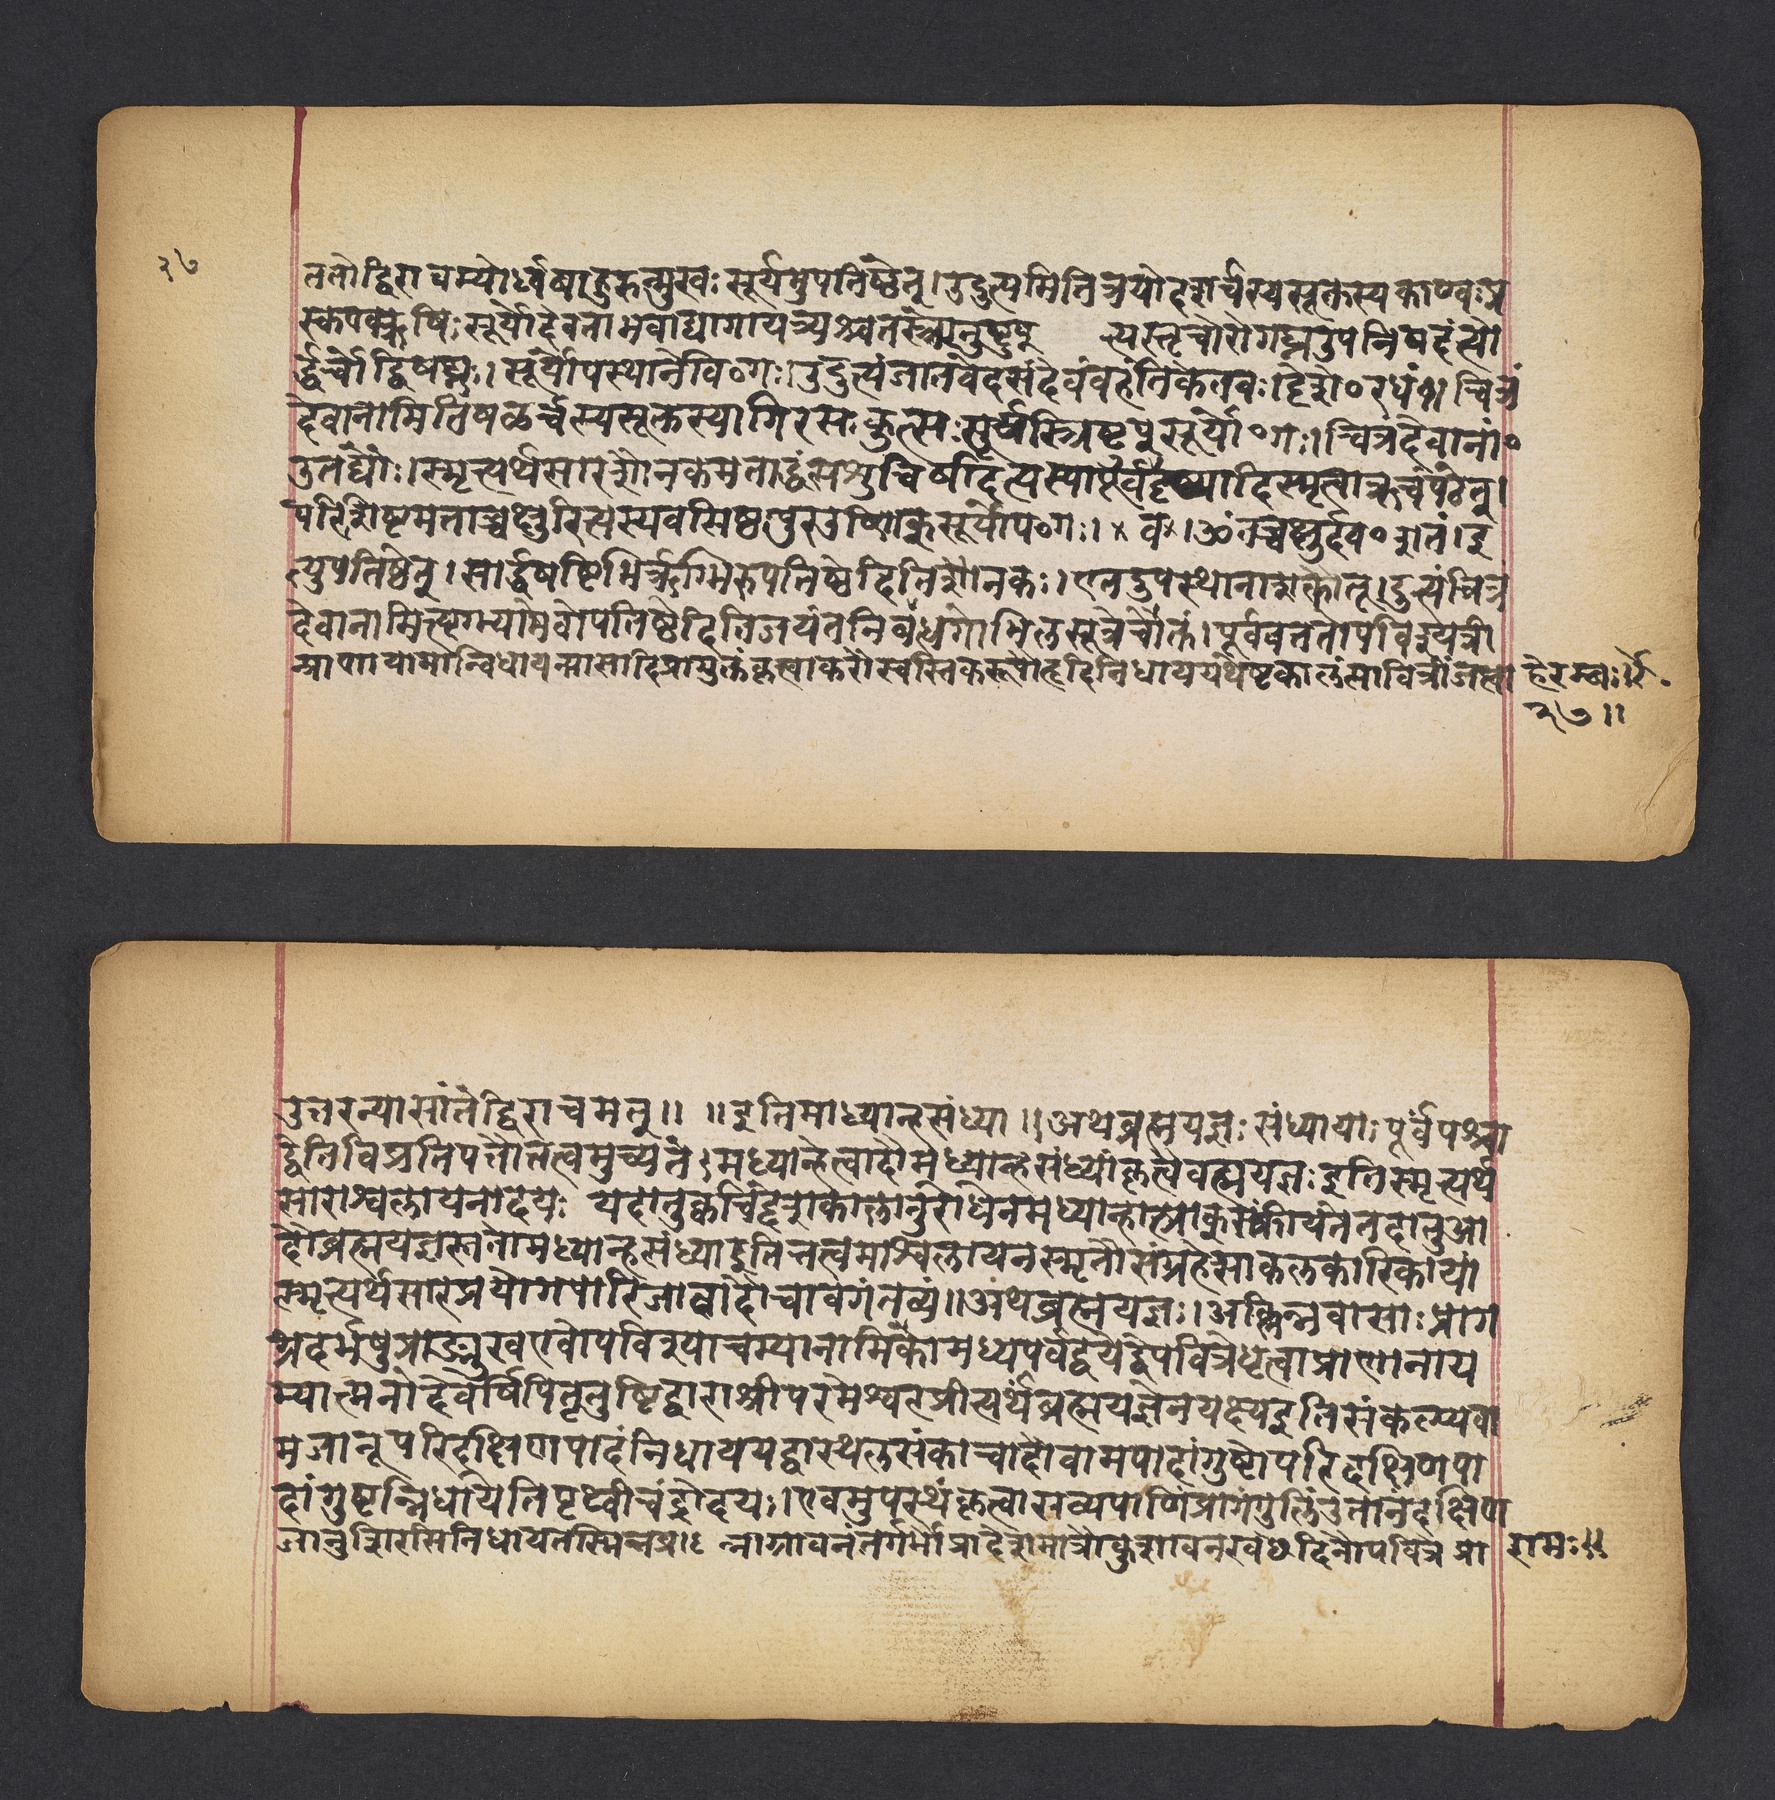 २७
ततोद्विराचम्योर्ध्वबाहुरुन्मुखः सूर्यमुपतिष्ठेत्।उदुत्यमितित्रयोदशर्चस्यसूक्तस्यकाण्वःप्र
स्कण्वऋषिः सूर्योदेवतानवाद्यागायत्र्यश्चतस्रोनुष्टुप् त्यस्तृचोरोगघ्नउपनिषदंत्यो
र्द्धर्चोद्विषघ्नः।सूर्योपस्थानेवि०गः।उदुत्यंजातवेदसंदेवंवहंतिकेतवः।दृशे०रधं१।चित्रं
देवानामितिषळर्चस्यसूक्तस्यांगिरसःकुत्सःसूर्यस्त्रिष्टुप्सूर्यो०गः।चित्रंदेवानां०
उतद्यौः।स्मृत्यर्थसारशौनकमताद्धंसःशुचिषदित्यस्या
परिशिष्टमतात्तच्चक्षुरित्यस्यवसिष्ठपुरउष्णिक्सूर्योप०गः। व।ॐतच्चक्षुर्देव०शतं।इ
त्युपतिष्ठेत्।सार्द्धषष्टिभिर्ऋग्भिरुपतिष्ठेदितिशौनकः।एतदुपस्थानाशक्तोतु।दुत्यंचित्रं
देवानामित्यृग्भ्यामेवोपतिष्ठेदितिजयंतनिबंधगोभिलसूत्रेचोक्तं।पूर्ववत्ततोपविश्यत्री
प्राणायामान्विधायन्यासादिप्रागुक्तंकृत्वाकरौस्वस्तिकरूपौहृदिनिधाययथेष्टकालंसावित्रींजप्त्वा
हेरम्बः॥
२७॥
उत्तरन्यासांतेद्विराचमेत्॥ ॥इतिमाध्यान्हसंध्या॥अथब्रह्मयज्ञः संध्यायाः पूर्वंपश्चा
द्वेतिविप्रतिपत्तौतत्वमुच्यते।मध्यान्हेत्वादौमध्यान्हसंध्यांकृत्वैवब्रह्मयज्ञःइतिस्मृत्यर्थ
साराश्वलायनादयः यदातुक्वचिद्देशकालानुरोधेनमध्यान्हात्प्राक् क्रीयतेतदातुआ
दौब्रह्मयज्ञस्ततोमध्यान्हसंध्याइतितत्वमाश्वलायनस्मृतौसंग्रहेसाकलकारिकायां
स्मृत्यर्थसारेप्रयोगपारिजातादौचावगंतव्यं॥अथब्रह्मयज्ञः।अक्लिन्नवासाःप्राग
ग्रदर्भेषुप्राङ्मुखएवोपविश्याचम्यानामिकामध्यपर्वद्वयेद्वेपवित्रेधृत्वाप्राणानाय
म्यात्मनोदेवर्षिपितृतुष्टिद्वाराश्रीपरमेश्वरप्रीत्यर्थंब्रह्मयज्ञेनयक्ष्यइतिसंकल्प्यवा
मजानूपरिदक्षिणपादंनिधाययद्वास्थलसंकोचादौवामपादांगुष्टोपरिदक्षिणपा
दांगुष्टन्निधायेतिपृथ्वीचंद्रोदयः।एवमुपस्थंकृत्वासव्यपाणिंप्रागंगुलिंउत्तानंदक्षिण
जानुशिरसिनिधायतस्मिन्नप्रा नंतर्गर्भौप्रादेशमात्रौ पवित्रेप्रा
रामः॥